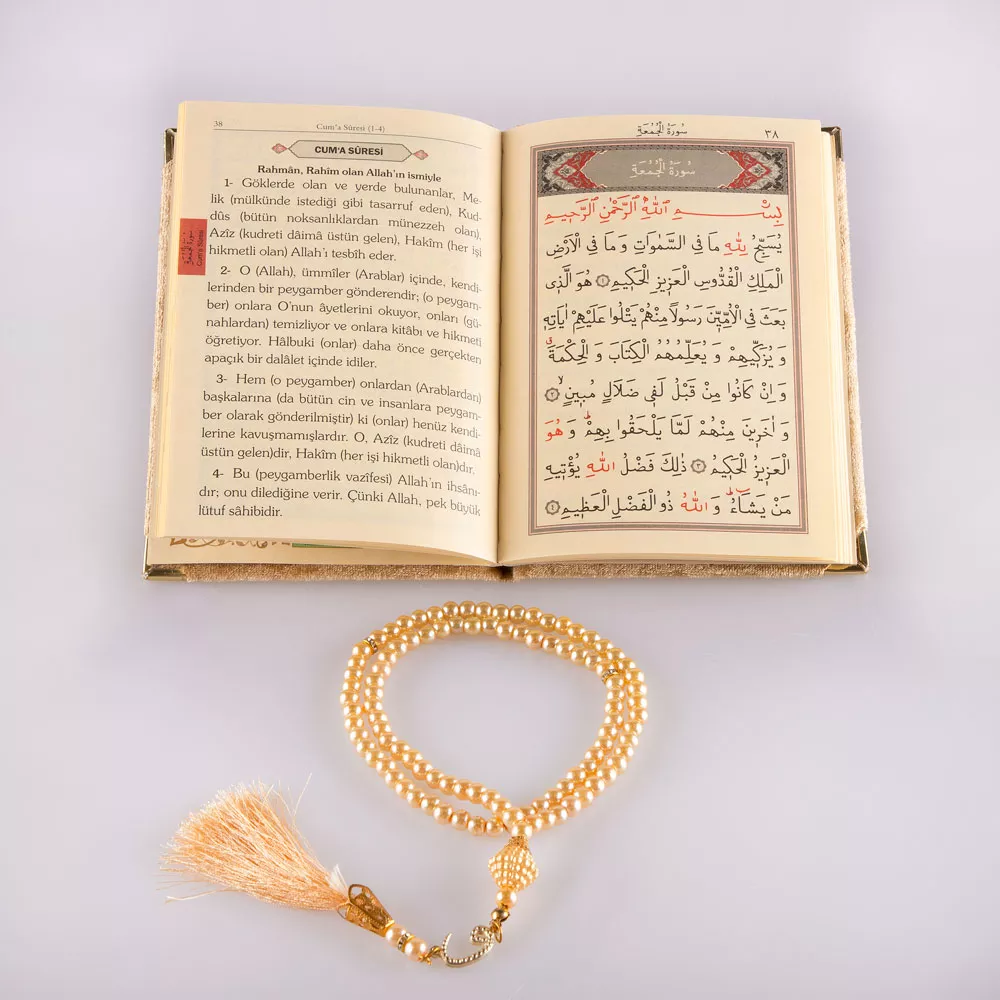 38
Cum'a Sûresi (1-4)
CUM'A SÛRESİ
Rahmân, Rahîm olan Allah'ın ismiyle
1- Göklerde olan ve yerde bulunanlar, Me-
lik (mülkünde istediği gibi tasarruf eden), Kud-
dûs (bütün noksanlıklardan münezzeh olan),
Azîz (kudreti dâimâ üstün gelen), Hakîm (her işi
hikmetli olan) Allah'ı tesbîh eder.
2- O (Allah), ümmîler (Arablar) içinde, kendi-
lerinden bir peygamber gönderendir; (o peygam-
ber) onlara O'nun âyetlerini okuyor, onları (gü-
nahlardan) temizliyor ve onlara kitâbı ve hikmeti
öğretiyor. Hâlbuki (onlar) daha önce gerçekten
apaçık bir dalâlet içinde idiler.
3- Hem (o peygamber) onlardan (Arablardan)
başkalarına (da bütün cin ve insanlara peygam-
ber olarak gönderilmiştir) ki (onlar) henüz kendi-
lerine kavuşmamışlardır. O, Azîz (kudreti dâimâ
üstün gelen)dir, Hakîm (her işi hikmetli olan)dır.
4- Bu (peygamberlik vazîfesi) Allah'ın ihsânı-
dır; onu dilediğine verir. Çünki Allah, pek büyük
lütuf sâhibidir.
سُورَةُ الْجُمُعَةِ
Cum'a Sûresi
سُورَةُ الْجُمُعَةِ
٣٨
سُورَةُ الْجُمُعَةِ
بِسْمِ اللّٰهِ الرَّحْمٰنِ الرَّحِيمِ
يُسَبِّحُ لِلّٰهِ مَا فِى السَّمٰوَاتِ وَ مَا فِى الْاَرْضِ
الْمَلِكِ الْقُدُّوسِ الْعَزِيزِ الْحَكِيمِ ﴿١﴾ هُوَ الَّذِى
بَعَثَ فِى الْاُمِّيّٖنَ رَسُولًا مِنْهُمْ يَتْلُوا عَلَيْهِمْ اٰيَاتِهٖ
وَ يُزَكّٖيهِمْ وَ يُعَلِّمُهُمُ الْكِتَابَ وَ الْحِكْمَةَ
وَ اِنْ كَانُوا مِنْ قَبْلُ لَفٖى ضَلَالٍ مُبٖينٍ ﴿٢﴾
وَ اٰخَرٖينَ مِنْهُمْ لَمَّا يَلْحَقُوا بِهِمْ وَ هُوَ
الْعَزٖيزُ الْحَكٖيمُ ﴿٣﴾ ذٰلِكَ فَضْلُ اللّٰهِ يُؤْتٖيهِ
مَنْ يَشَاءُ وَ اللّٰهُ ذُو الْفَضْلِ الْعَظٖيمِ ﴿٤﴾